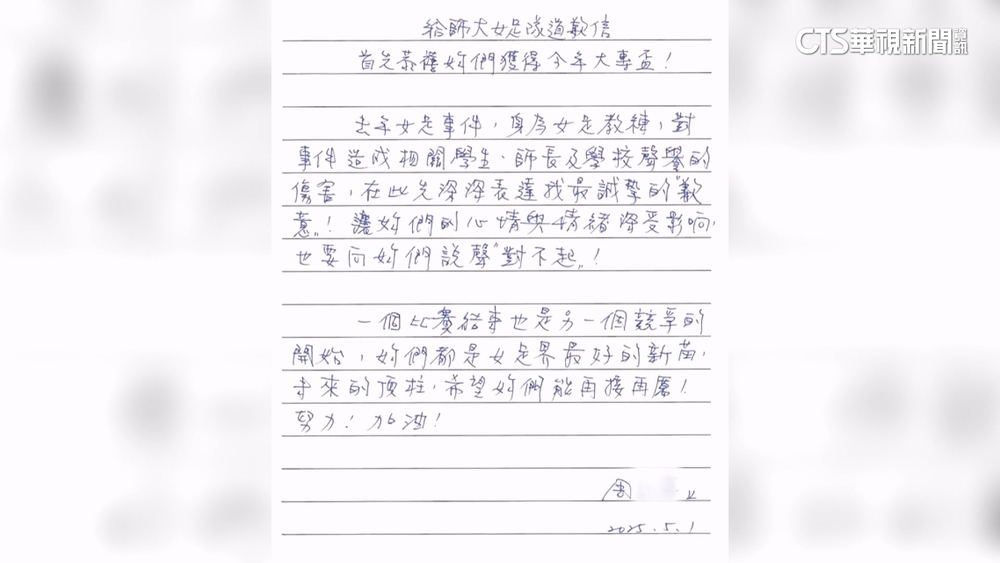 CTS華視新聞資訊
給師大女足隊道歉信
首先恭禧妳們獲得今年大專盃！
去年女足事件，身為女足教練，對
事件造成相關學生、師長及學校聲譽的
傷害，在此先深深表達我最誠摯的"歉
意"！讓妳們的心情與情緒深受影响，
也要向妳們說聲"對不起"！
一個比賽結束也是另一個競爭的
開始，妳們都是女足界最好的新苗，
未來的頂柱，希望妳們能再接再厲！
努力！加油！
周
2025.5.1